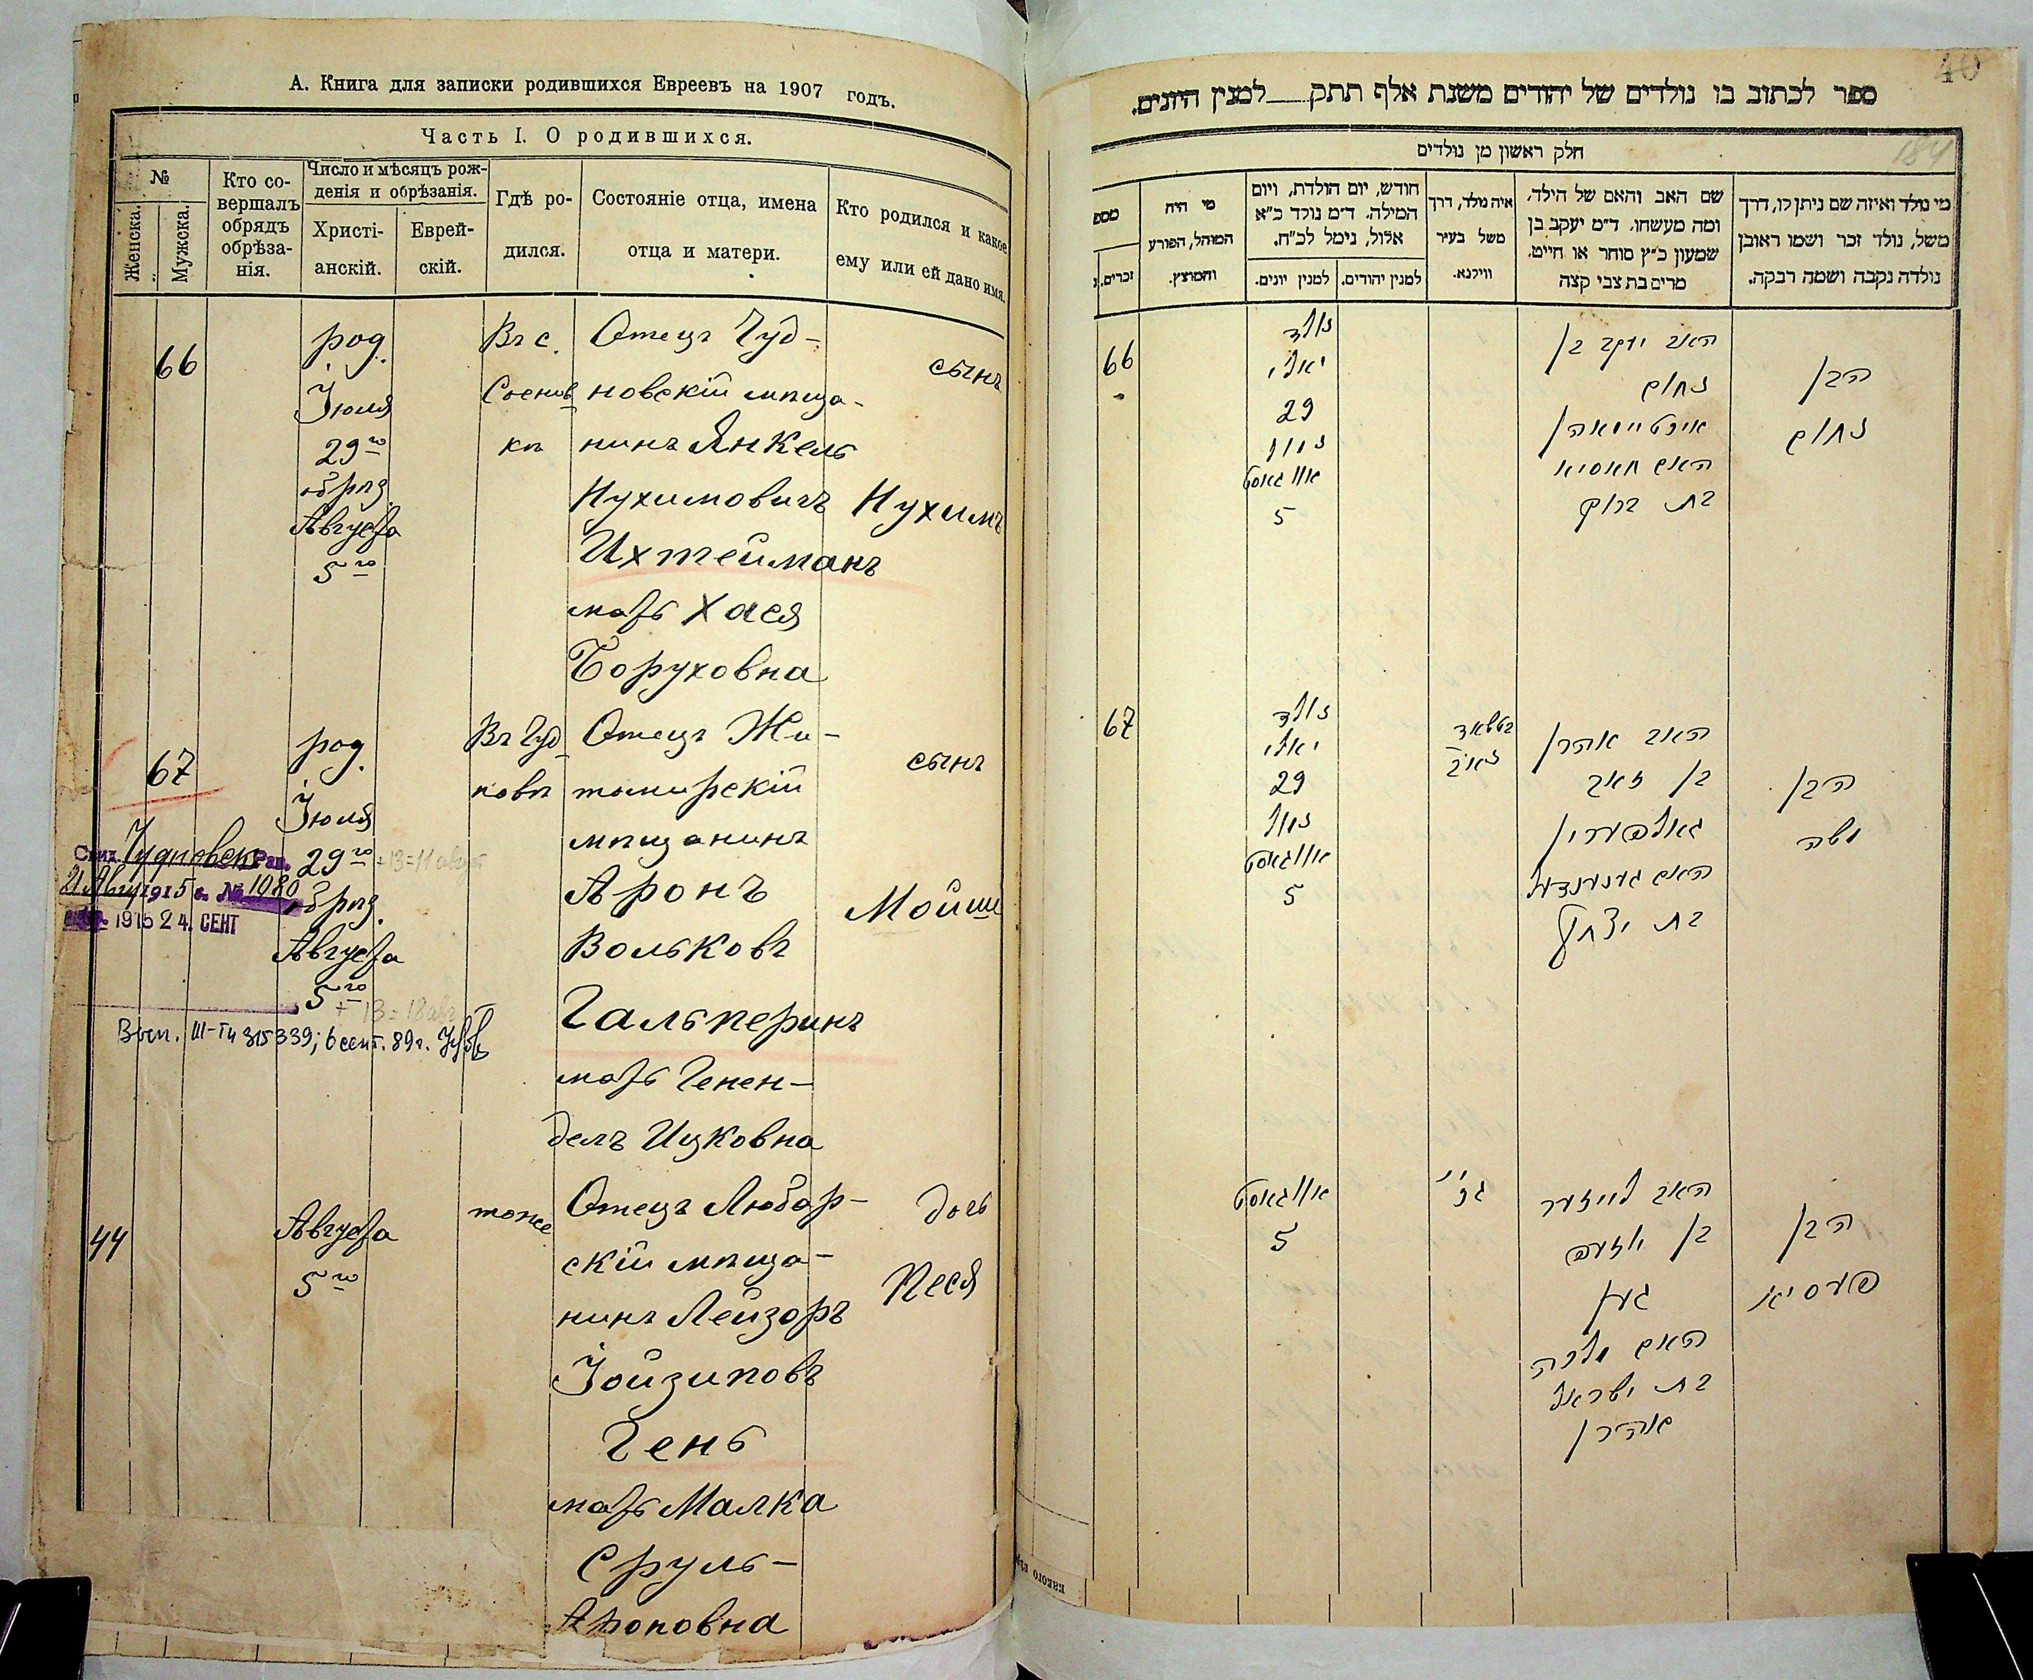 А. Книга для записки родившихся Евреевъ на 1907 годъ.
Часть I. О родившихся.
№
Женска.
Мужска.
Кто со-
вершалъ
обрядъ
обрѣза-
нія.
Число и мѣсяцъ рож-
денія и обрѣзанія.
Христі-
анскій.
Еврей-
скій.
Гдѣ ро-
дился.
Состояніе отца, имена
отца и матери.
Кто родился и какое
ему или ей дано имя.
66
род.
Іюля
29го
обрѣз.
Августа
5го
Въ с.
Соснов
кѣ
Отецъ Чуд-
новскій мѣща-
нинъ Янкель
Нухимовичъ
Ихтейманъ
мать Хася
Боруховна
сынъ
Нухимъ
67
род.
Іюля
29го +13=11 август
обрѣз.
Августа
5го
+ 13 = 18 авг
Въ Чуд
новѣ
Отецъ Жи-
томирскій
мѣщанинъ
Аронъ
Вольковъ
Гальперинъ
мать Генен-
делъ Ицковна
сынъ
Мойше
Чудновск Рав.
21 Авг 1915 г. № 1080
1915 24. СЕНТ
44
Августа
5го
тоже
Отецъ Любар-
скій мѣща-
нинъ Лейзоръ
Іойзиповъ
Генъ
мать Малка
Сруль-
Ароновна
дочь
Песя
40
184
ספר לכתוב בו נולדים של יהודים משנת אלף תתק___למנין היונים.
חלק ראשון מן נולדים
מספ
זכרים.
מי היה
המוהל, הפורע
והמוצץ.
חודש, יום הולדת, ויום
המילה. ד״מ נולד כ״א
אלול, נימל לכ״ח.
למנין יונים.
למנין יהודים.
איה נולד, דרך
משל בעיר
ווילנא.
שם האב והאם של הילד,
ומה מעשהו. ד״מ יעקב בן
שמעון כ״ץ סוחר או חייט,
מרים בת צבי קצה
מי נולד ואיזה שם ניתן לו, דרך
משל, נולד זכר ושמו ראובן
נולדה נקבה ושמה רבקה.
66
נולד
יאלי
29
נימול
אווגאסט
5
האב יעקב בן
נחום
איכטיימאן
האם חאסיא
בת ברוך
הבן
נחום
67
נולד
יאלי
29
נימול
אווגאסט
5
האב אהרן
בן זאב
גאלפערין
האם גענענדעל
בת יצחק
הבן
משה
אווגאסט
5
האב לייזער
בן יוזעפ
גען
האם מלכה
בת ישראל
אהרן
הבן
פעסיא